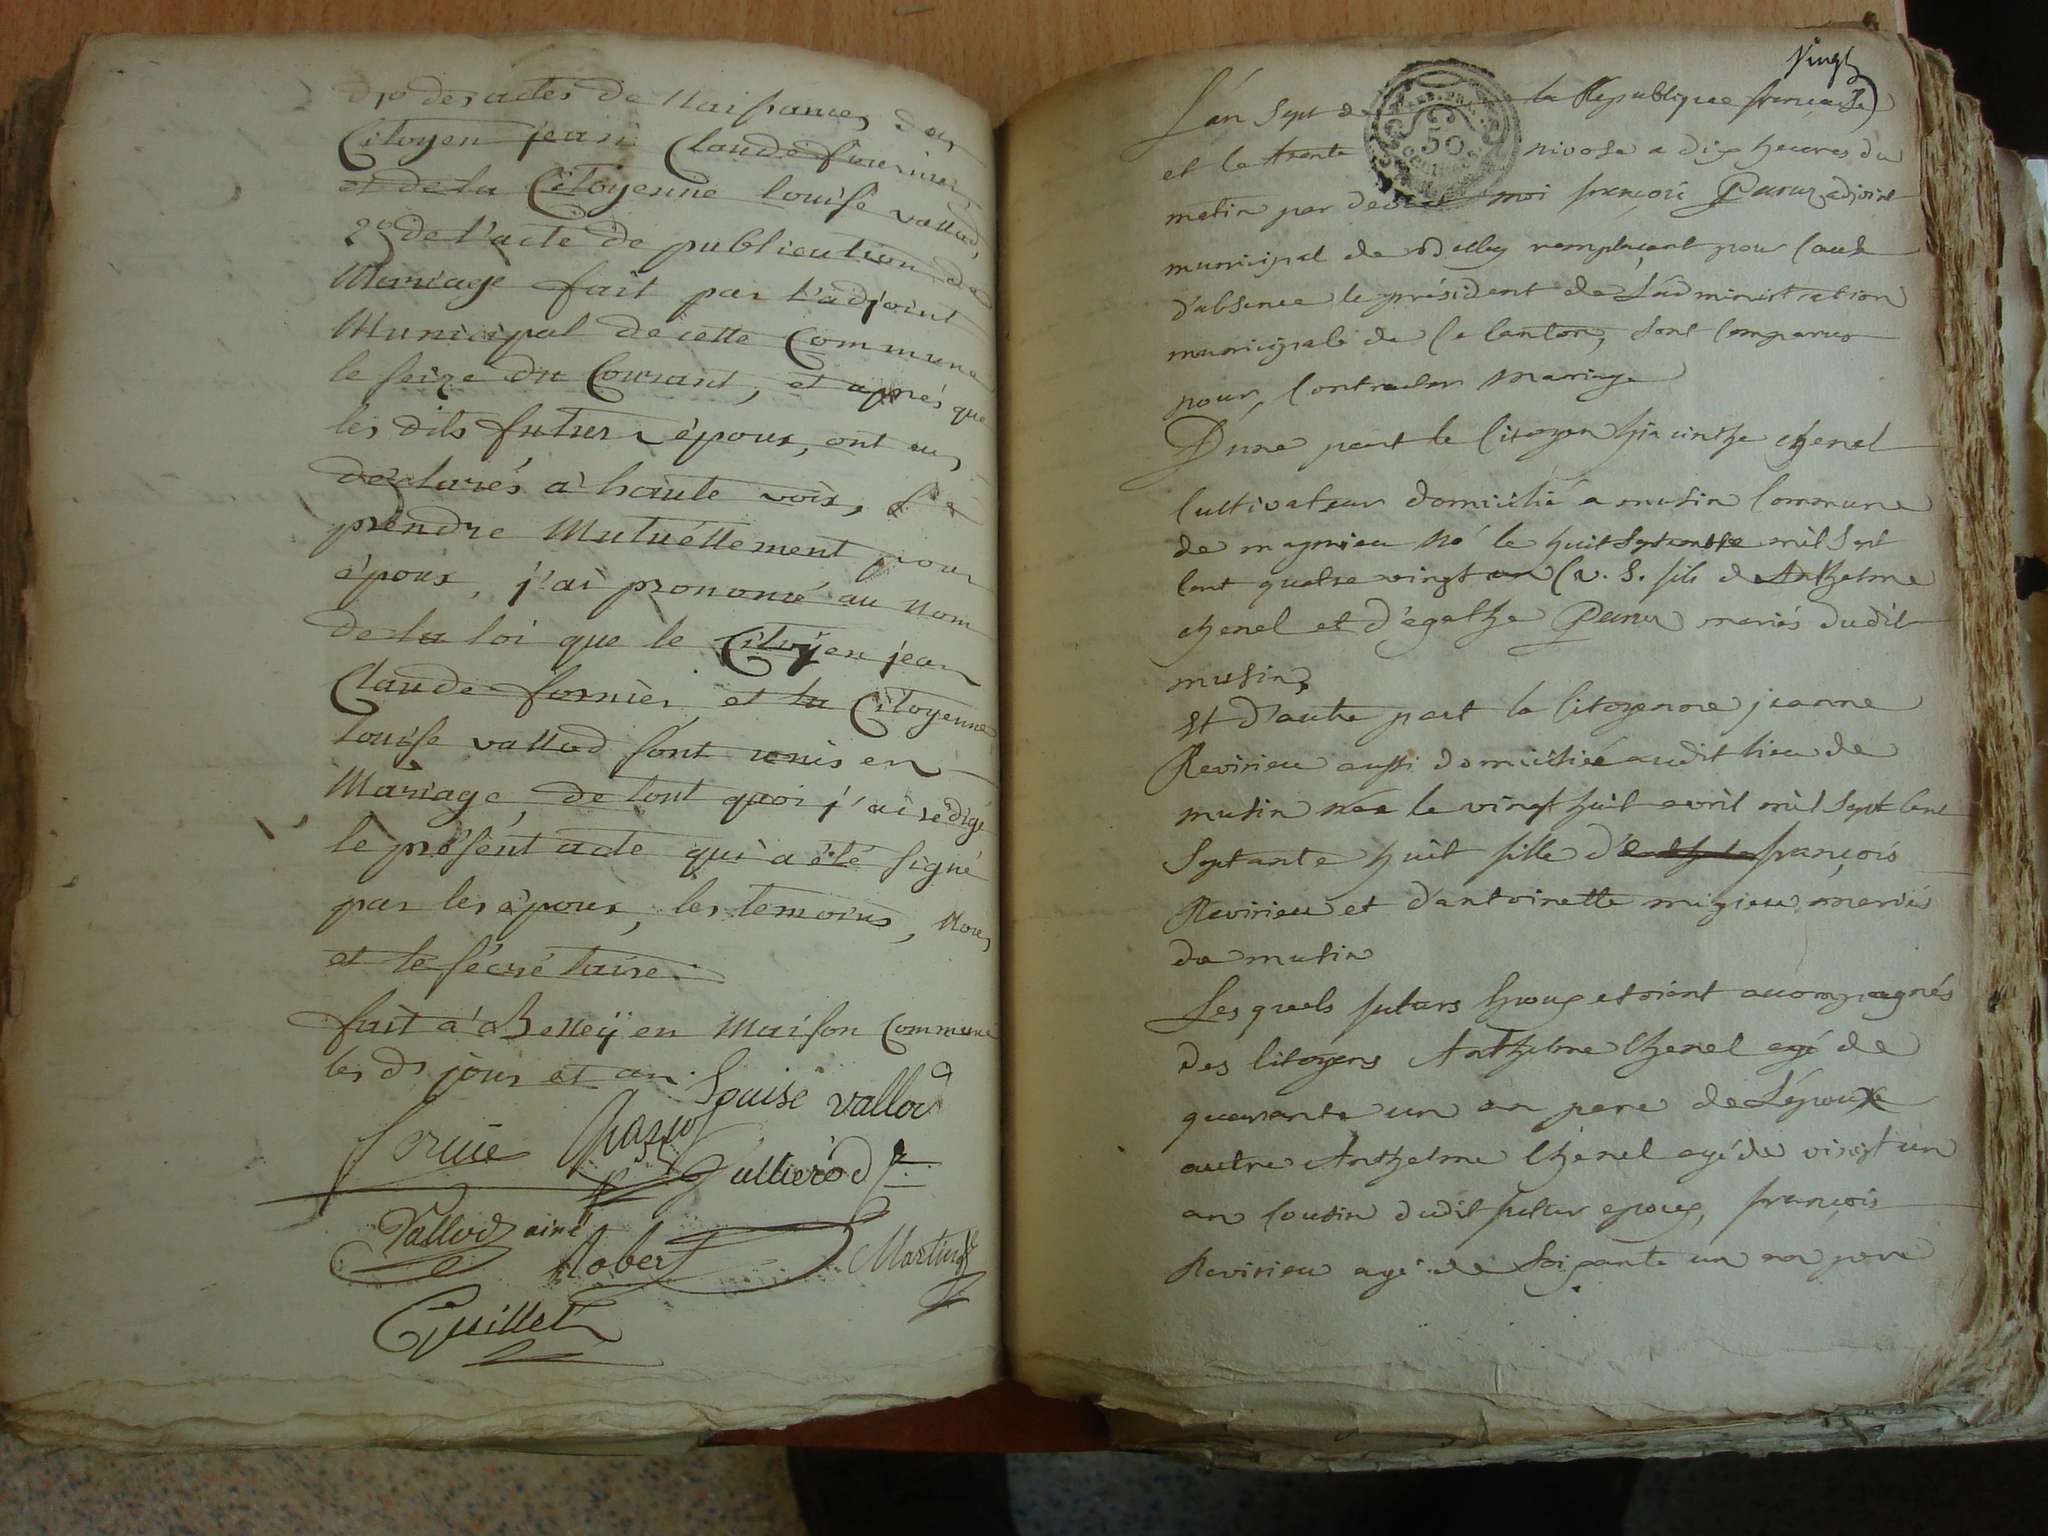 d 1º des actes de Naissances des
Citoyen jean Claude fournier
et de la Citoyenne louise vallod,
2º de l'acte de publication de
Mariage fait par l'adjoint
Municipal de cette Commune
le seize du Courant, et aprés que
les dits futurs époux, ont eus
déclarés a haute voix, se
prendre Mutuéllement pour
époux, j'ai prononcé au Nom
de la loi que le Citoyen jean
Claude fornier et la Citoyenne
louise vallod sont unis en
Mariage, de tout quoi j'ai rédigé
le présent acte qui a été signé
par les époux, les temoins, Nous
et le sécrétaire.
fait a Belleÿ en Maison Commune
les d. jour et an.
Louise vallod
Vallod ainé
Robert
Martin
Guillet
Vingt
L'an Sept de la Republique française
50
et le trente nivose a dix heures du
matin par devant moi françois Parux adjoint
municipal de Belley remplaçant pour cause
d'absence le président de L'administration
municipale de Ce Canton, Sont Comparus
pour, Contracter Mariage
D'une part le Citoyen hiacinthe chenel
Cultivateur domicilié a musin Commune
de magnieu Né le huit Septembre mil Sept
Cent quatre vingt un (v. S. fils d'Anthelme
chenel et d'égathe Parux mariés dudit
musin,
Et d'autre part la Citoyenne jeanne
Revirieu aussi domiciliée audit lieu de
musin née le vingt huit avril mil Sept Cent
Septante huit fille de françois
Revirieu et d'antoinette migieu mariés
de musin
Les quels futurs Epoux etoient acompagnés
des Citoyens Anthelme Chenel agé de
quarante un an pere de L'époux
autre Anthelme Chenel agé de vingt un
an Cousin dudit futur epoux, françois
Revirieu agé de Soixante un an pere